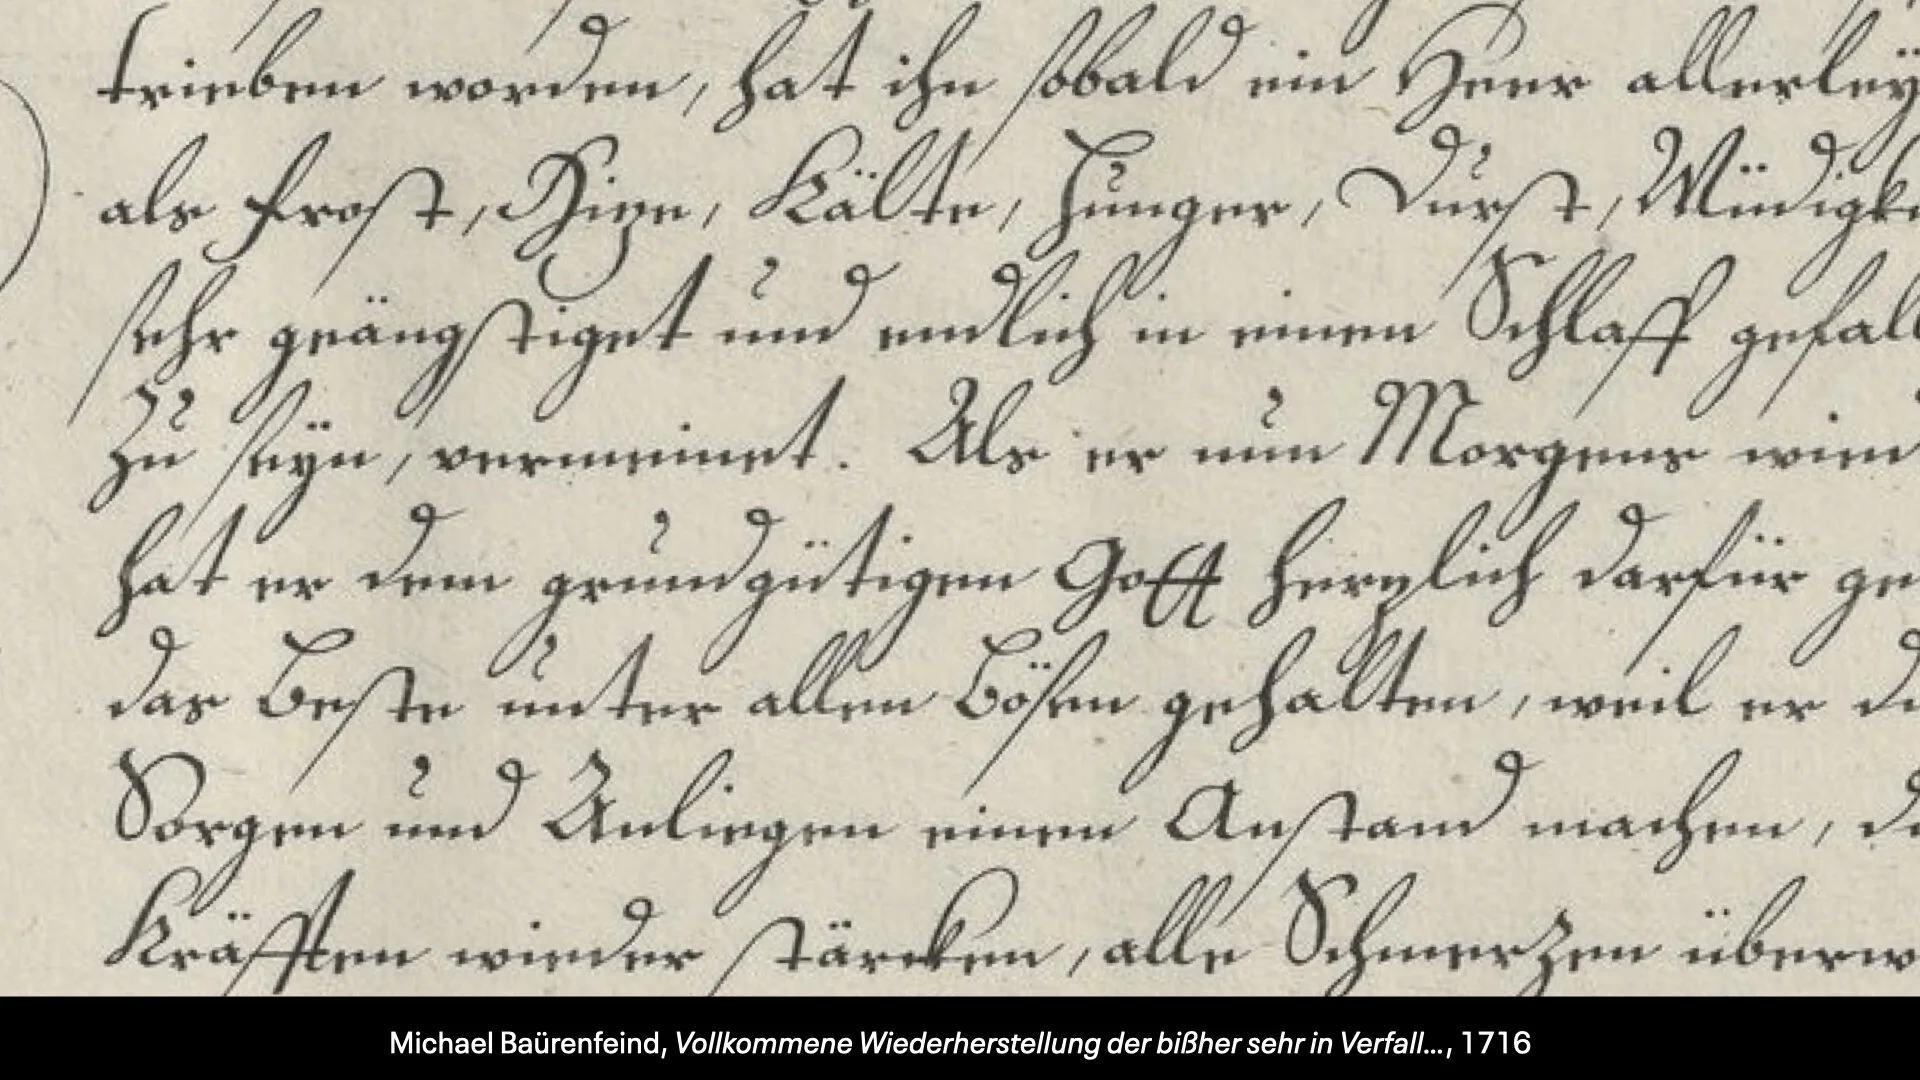 trieben worden, hat ihn sobald ein Heer allerley
als Frost, Hize, Kälte, Hunger, Durst, Müdigke
sehr geängstiget und endlich in einen Schlaff gefall
zu seyn, vermeinet. Als er nun Morgens wied
hat er dem grundgütigen Gott herzlich darfür ge
das Beste unter allen Bösen gehalten, weil er di
Sorgen und Anliegen einen Anstand machen, di
Kräfften wieder stärcken, alle Schmerzen überw
Michael Baürenfeind, Vollkommene Wiederherstellung der bißher sehr in Verfall..., 1716